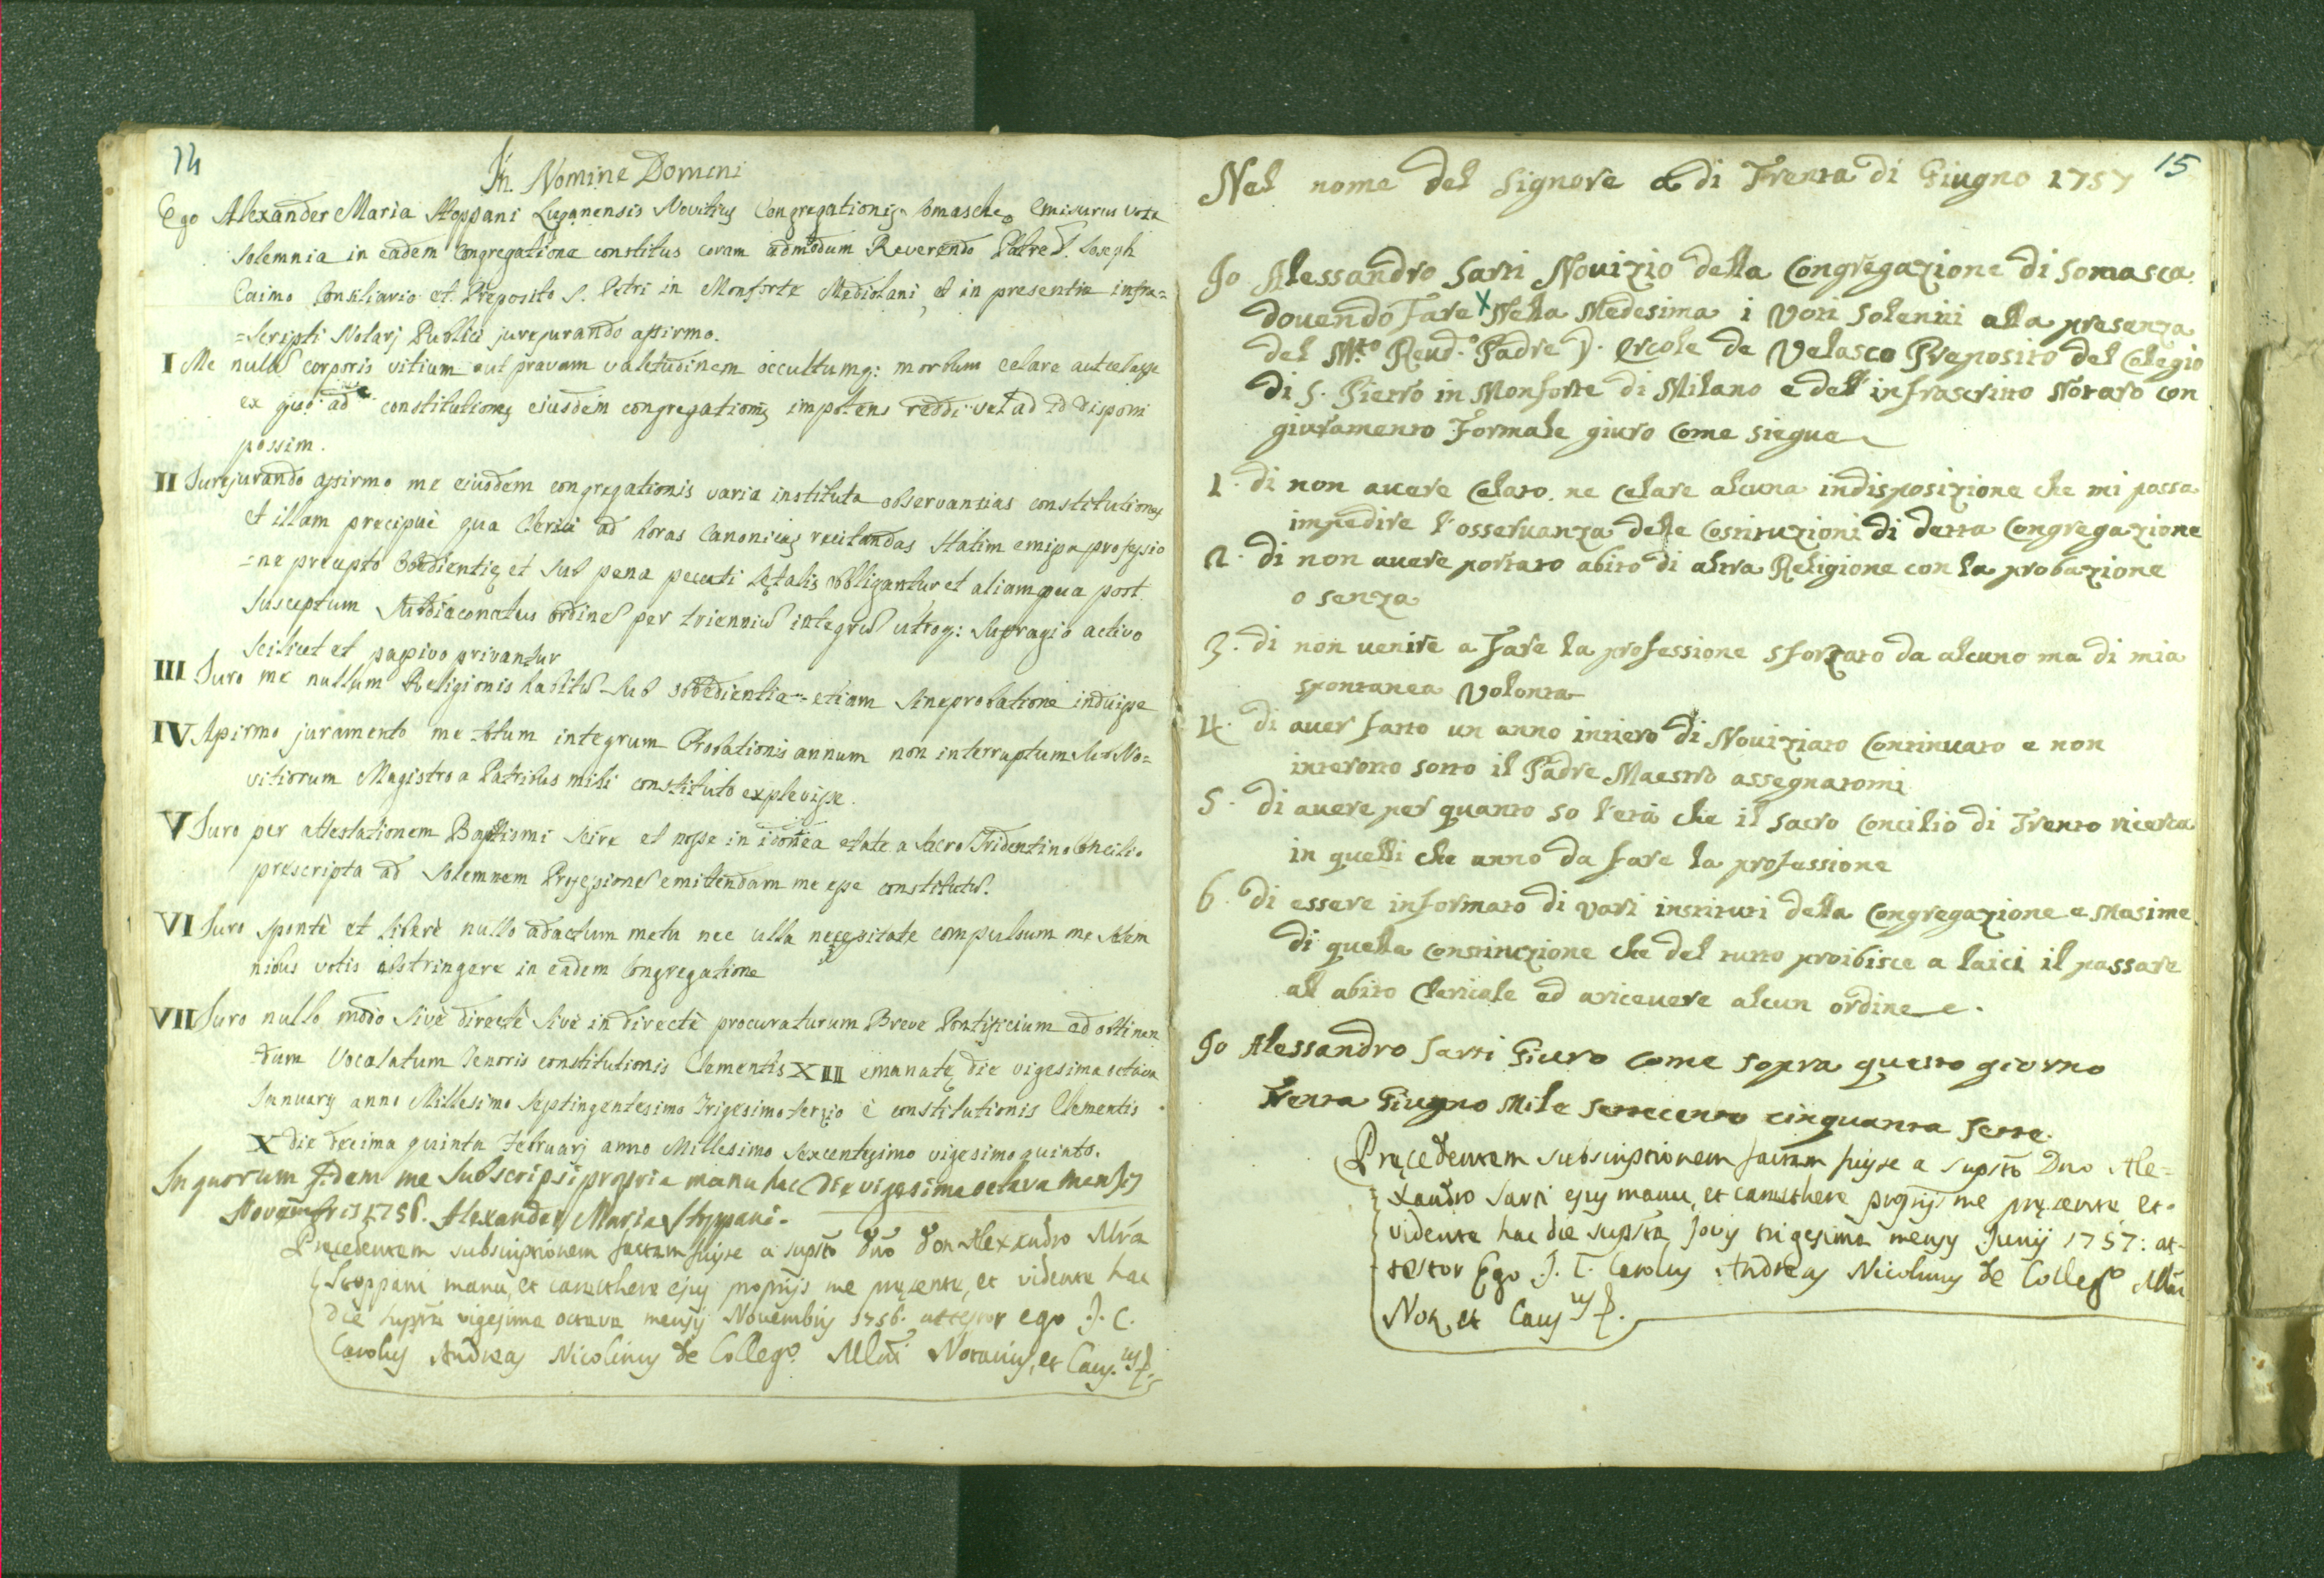 14
In Nomine Domini
Ego Alexander Maria Stoppani Luganensis Novitius Congregationis Somasche emisurus vota
solemnia in eadem Congregatione constitus coram admodum Reverendo Patre D. Joseph
Caimo Consiliario et Preposito S. Petri in Monforte Mediolani, et in presentia infra=
=scripti Notarj Publici jurejurando assirmo.
I Me nullũ corporis vitium aut pravam valetudinem occultumq: morbum celare aut celasse
ex quo ad constitutiones eiusdem congregationis impotens reddi vel ad id disponi
possim.
II Jurejurando assirmo me eiusdem congregationis varia instituta observantias constitutiones
et illam precipuè qua Clerici ad horas Canonicas recitandas statim emissa professio
=ne precepto obedientię et sub pena peccati letalis obbligantur et aliam qua post
susceptum Subdiaconatus ordinẽ per trienniũ integrũ utroq: sufragio activo
scilicet et passivo privantur
III Juro me nullum Religionis habitũ sub obbedientia etiam sine probatione induisse
IV Assirmo juramento me totum integrum Probationis annum non interruptum sub No=
vitiorum Magistro a Patribus mihi constituto explevisse.
V Juro per attestationem Baptismi scire et nosse in idonea etate a Sacro Tridentino Concilio
prescripta ad solemnem Professionẽ emitendam me esse constitutũ.
VI Juro spontè et liberè nullo adactum metu nec ulla necessitate compulsum me solem
nibus votis abstringere in eadem Congregatione
VII Juro nullo modo sivè directè sivè indirectè procuraturum Breve Pontificium ad obtinen
dum Vocalatum tenoris constitutionis Clementis XII emanatę die vigesima octava
Januarj anno Millesimo Septingentesimo Trigesimo terzio è constitutionis Clementis
X die decima quinta Februarj anno Millesimo sexcentesimo vigesimo quinto.
In quorum fidem me subscripsi propria manu hac die vigesima octava mensis
Novembris 1756. Alexander Maria Stoppani.
Pręcedentem subscriptionem factam fuisse a supsto Dno Don Alexandro Mra
Stoppani manu, et caracthere ejus proprijs me pręsente, et vidente hac
die suppta vigesima octava mensis Novembris 1756. attestor ego J. C.
Carolus Andreas Nicolinus de Collego. Mlni Notarius, et Caus.us
15
Nel nome del Signore a di Trenta di Giugno 1757
Jo Alessandro Sarti Novizio della Congregazione di Somasca
dovendo fare x Nella Medesima i Voti solenni alla presenza
del M.to Rend.o Padre D. Ercole de Velasco Preposito del Colegio
di S. Pietro in Monforte di Milano e dell'infrascritto Notaro con
giuramento formale giuro come siegue
1. di non avere celato ne celare alcuna indisposizione che mi possa
impedire l'osservanza delle Costituzioni di detta Congregazione
2. di non avere portato abito di altra Religione con la probazione
o senza
3. di non venire a fare la professione sforzato da alcuno ma di mia
spontanea volonta
4. di aver fatto un anno intiero di Noviziato continuato e non
interotto sotto il Padre Maestro assegnatomi
5. di avere per quanto so l'età che il sacro Concilio di Trento ricerca
in quelli che anno da fare la professione
6. di essere informato di vari instituti della Congregazione e masime
di quella constituzione che del tutto proibisce a laici il passare
all abito Clericale ed aricevere alcun ordine.
Jo Alessandro Sarti Giuro come sopra questo giorno
Trenta Giugno Mile settecento cinquanta sette.
Pręcedentem subscriptionem factam fuisse a supsto Dno Ale=
xandro Sarti ejus manu, et caracthere proprijs me pręsente et
vidente hac die supsta Jovis trigesima mensis Junij 1757: at-
testor Ego J. C. Carolus Andreas Nicolinus de Collego Mlni
Not. et Caus.us